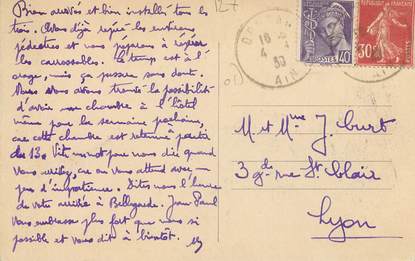 Bien arrivés et bien installés tous les
trois. Avons déjà repéré les environs
pédestres et nous pensons à repérer
les carrossables. Le temps est à l'
orage, mais ça passe sans doute.
Nous vous avons trouvé la possibilité
d'avoir une chambre à l'hôtel
même pour la semaine prochaine,
car cette chambre est retenue à partir
du 13. Vite un mot pour nous dire quand
vous arrivez, car on vous attend avec
pas d'impatience. Dites nous l'heure
de votre arrivée à Bellegarde. Jean Paul
vous embrasse plus fort que nous si
possible et vous dit à bientôt.
127
18
4
39
AIN
POSTES
40
30c
M. et Mme J. Burt
3 gde rue St Clair
Lyon